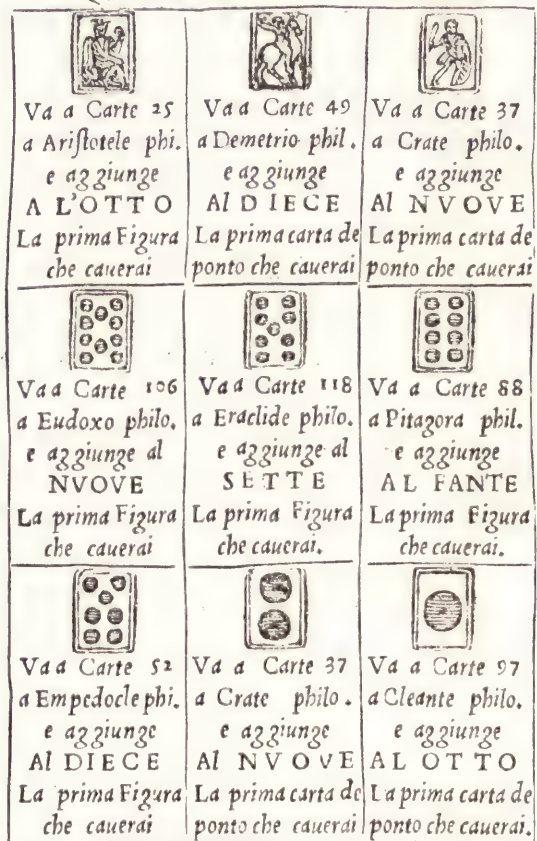 Va a Carte 25
a Aristotele phi.
e aggiunge
A L'OTTO
La prima Figura
che cauerai
Va a Carte 49
a Demetrio phil.
e aggiunge
Al DIECE
La prima carta de
ponto che cauerai
Va a Carte 37
a Crate philo.
e aggiunge
Al NVOVE
La prima carta de
ponto che cauerai
Va a Carte 106
a Eudoxo philo.
e aggiunge al
NVOVE
La prima Figura
che cauerai
Va a Carte 118
a Eraclide philo.
e aggiunge al
SETTE
La prima Figura
che cauerai.
Va a Carte 88
a Pitagora phil.
e aggiunge
AL FANTE
La prima Figura
che cauerai.
Va a Carte 52
a Empedocle phi.
e aggiunge
Al DIECE
La prima Figura
che cauerai
Va a Carte 37
a Crate philo.
e aggiunge
Al NVOVE
La prima carta de
ponto che cauerai
Va a Carte 97
a Cleante philo.
e aggiunge
AL OTTO
La prima carta de
ponto che cauerai.